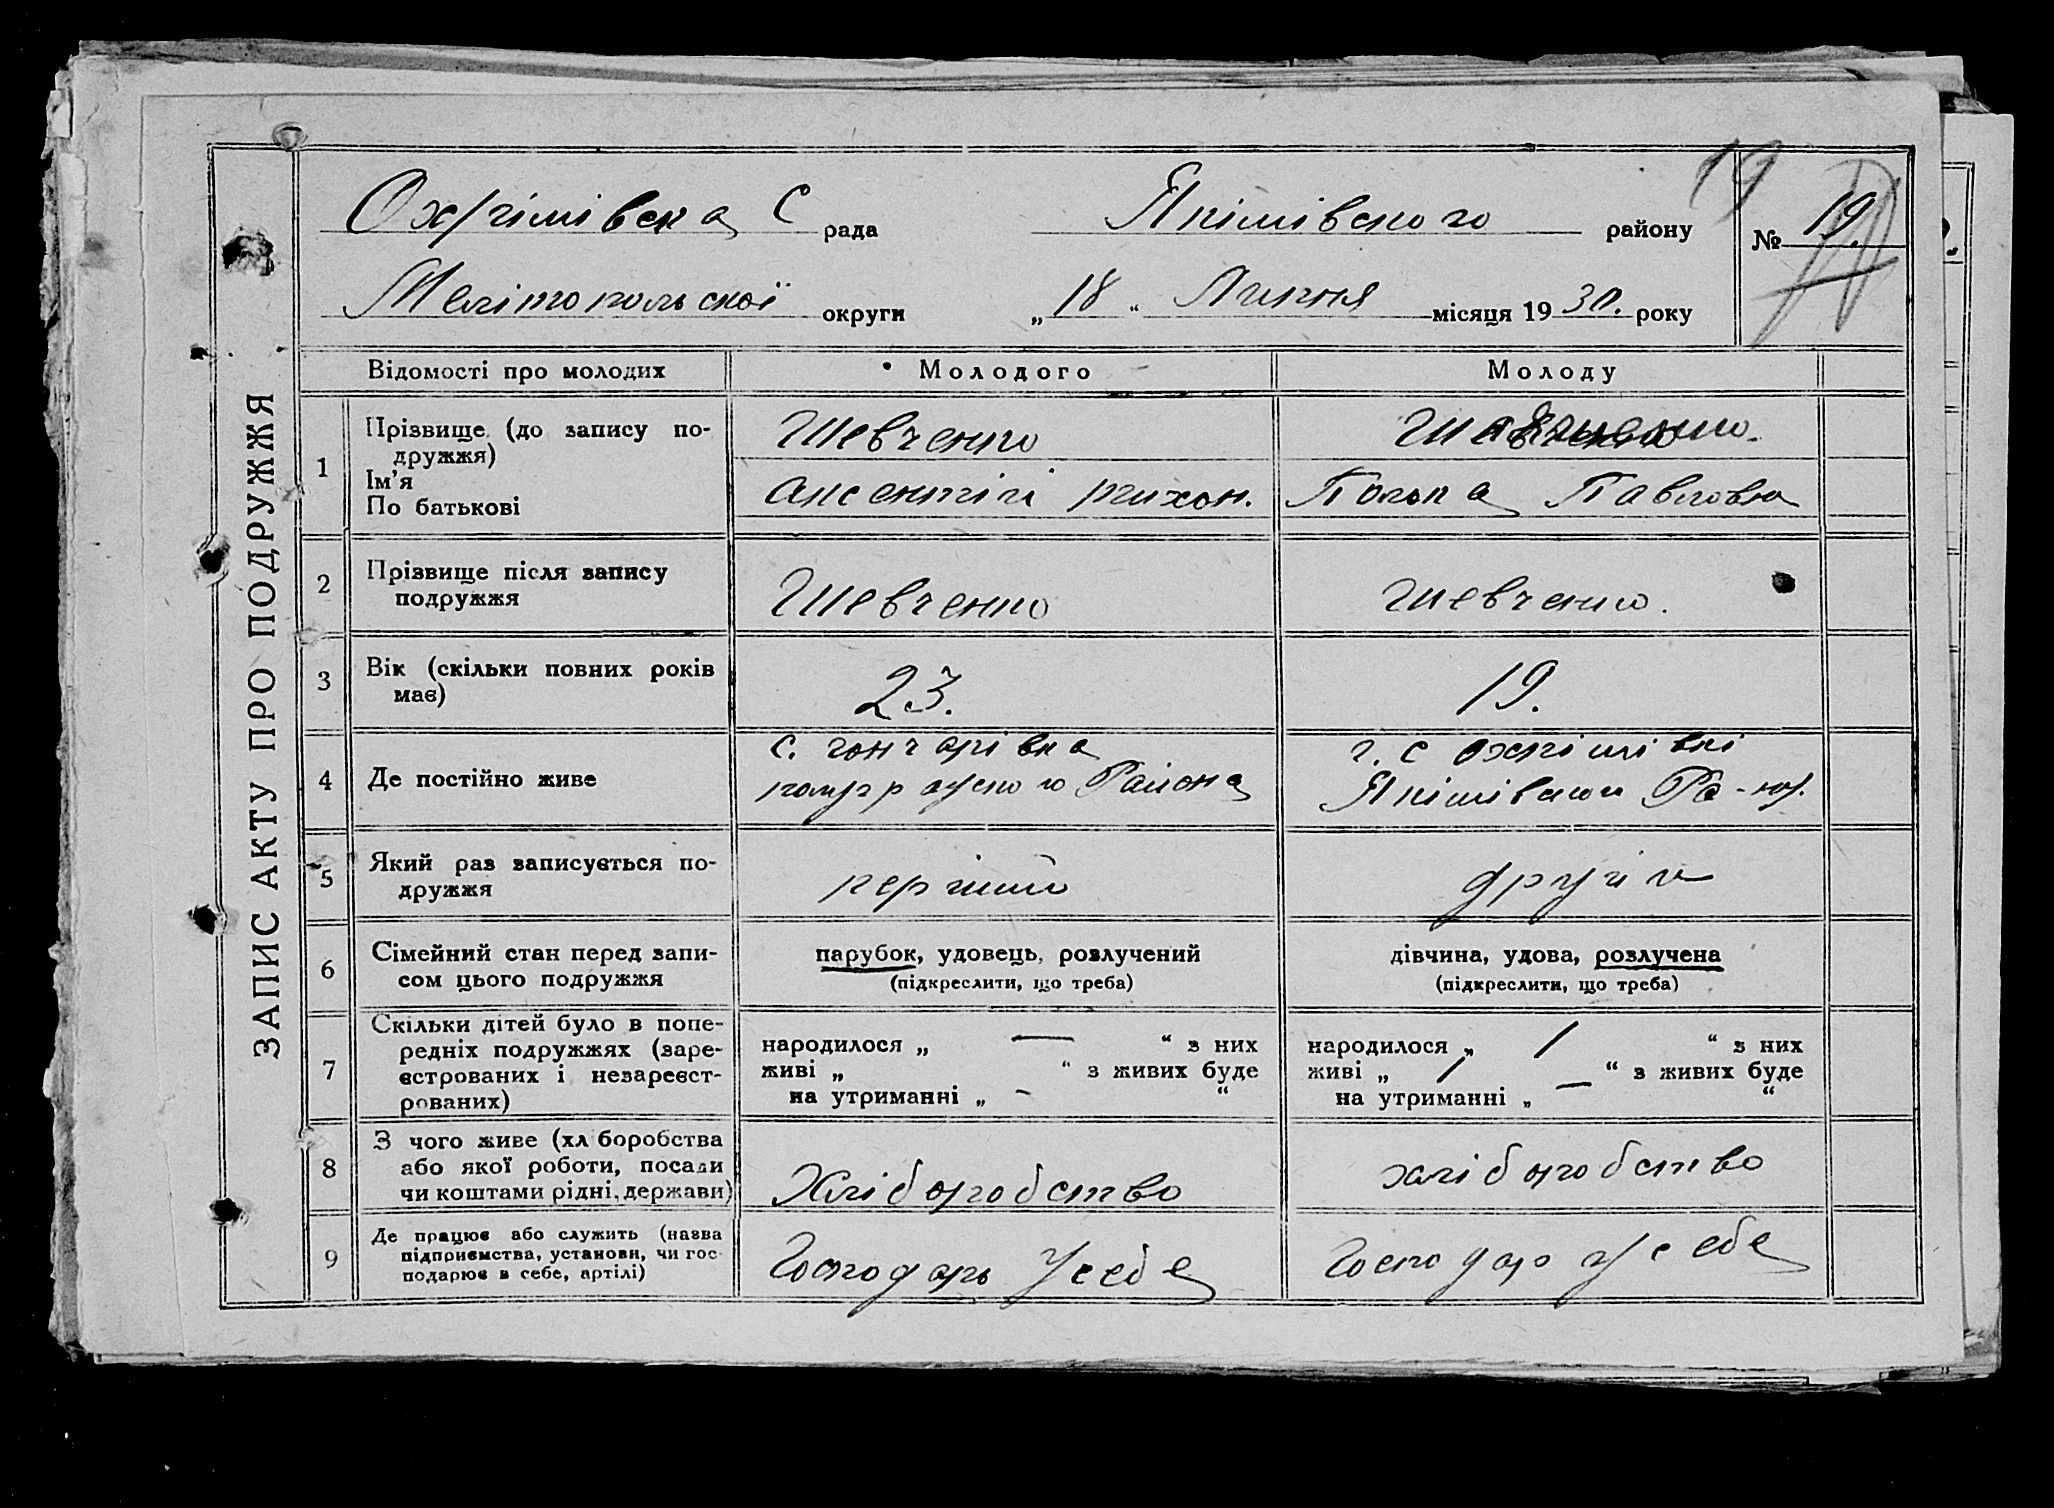 ЗАПИС АКТУ ПРО ПОДРУЖЖЯ
Охрімівска С рада Якімівского району 19 № 19.
Мелітопольскої округи „18“ Липня місяця 1930. року
Відомості про молодих Молодого Молоду
1 Прізвище (до запису подружжя) Шевченко
Ім'я
По батькові Аксентій тихон. Полька Павловна
2 Прізвище після запису Шевченко Шевченко.
подружжя
3 Вік (скільки повних років 23. 19.
має)
4 Де постійно живе с. гончарівка г. с охрімівкі
Района Якімівського Ра-ну.
5 Який раз записується по- перший другій
дружжя
6 Сімейний стан перед запи- парубок, удовець, розлучений дівчина, удова, розлучена
сом цього подружжя (підкреслити, що треба) (підкреслити, що треба)
7 Скільки дітей було в попе-
редніх подружжях (заре- народилося „ — “ з них народилося „ 1 “ з них
єстрованих і незареєст- живі „ “ з живих буде живі „ 1 “ з живих буде
рованих) на утриманні „ - “ на утриманні „ — “
8 З чого живе (хл боробства
або якої роботи, посади Хліборобство хліборобство
чи коштами рідні, держави)
9 Де працює або служить (назва
підприємства, установи, чи гос- Господарь У себе Господарь У себе
подарює в себе, артілі)